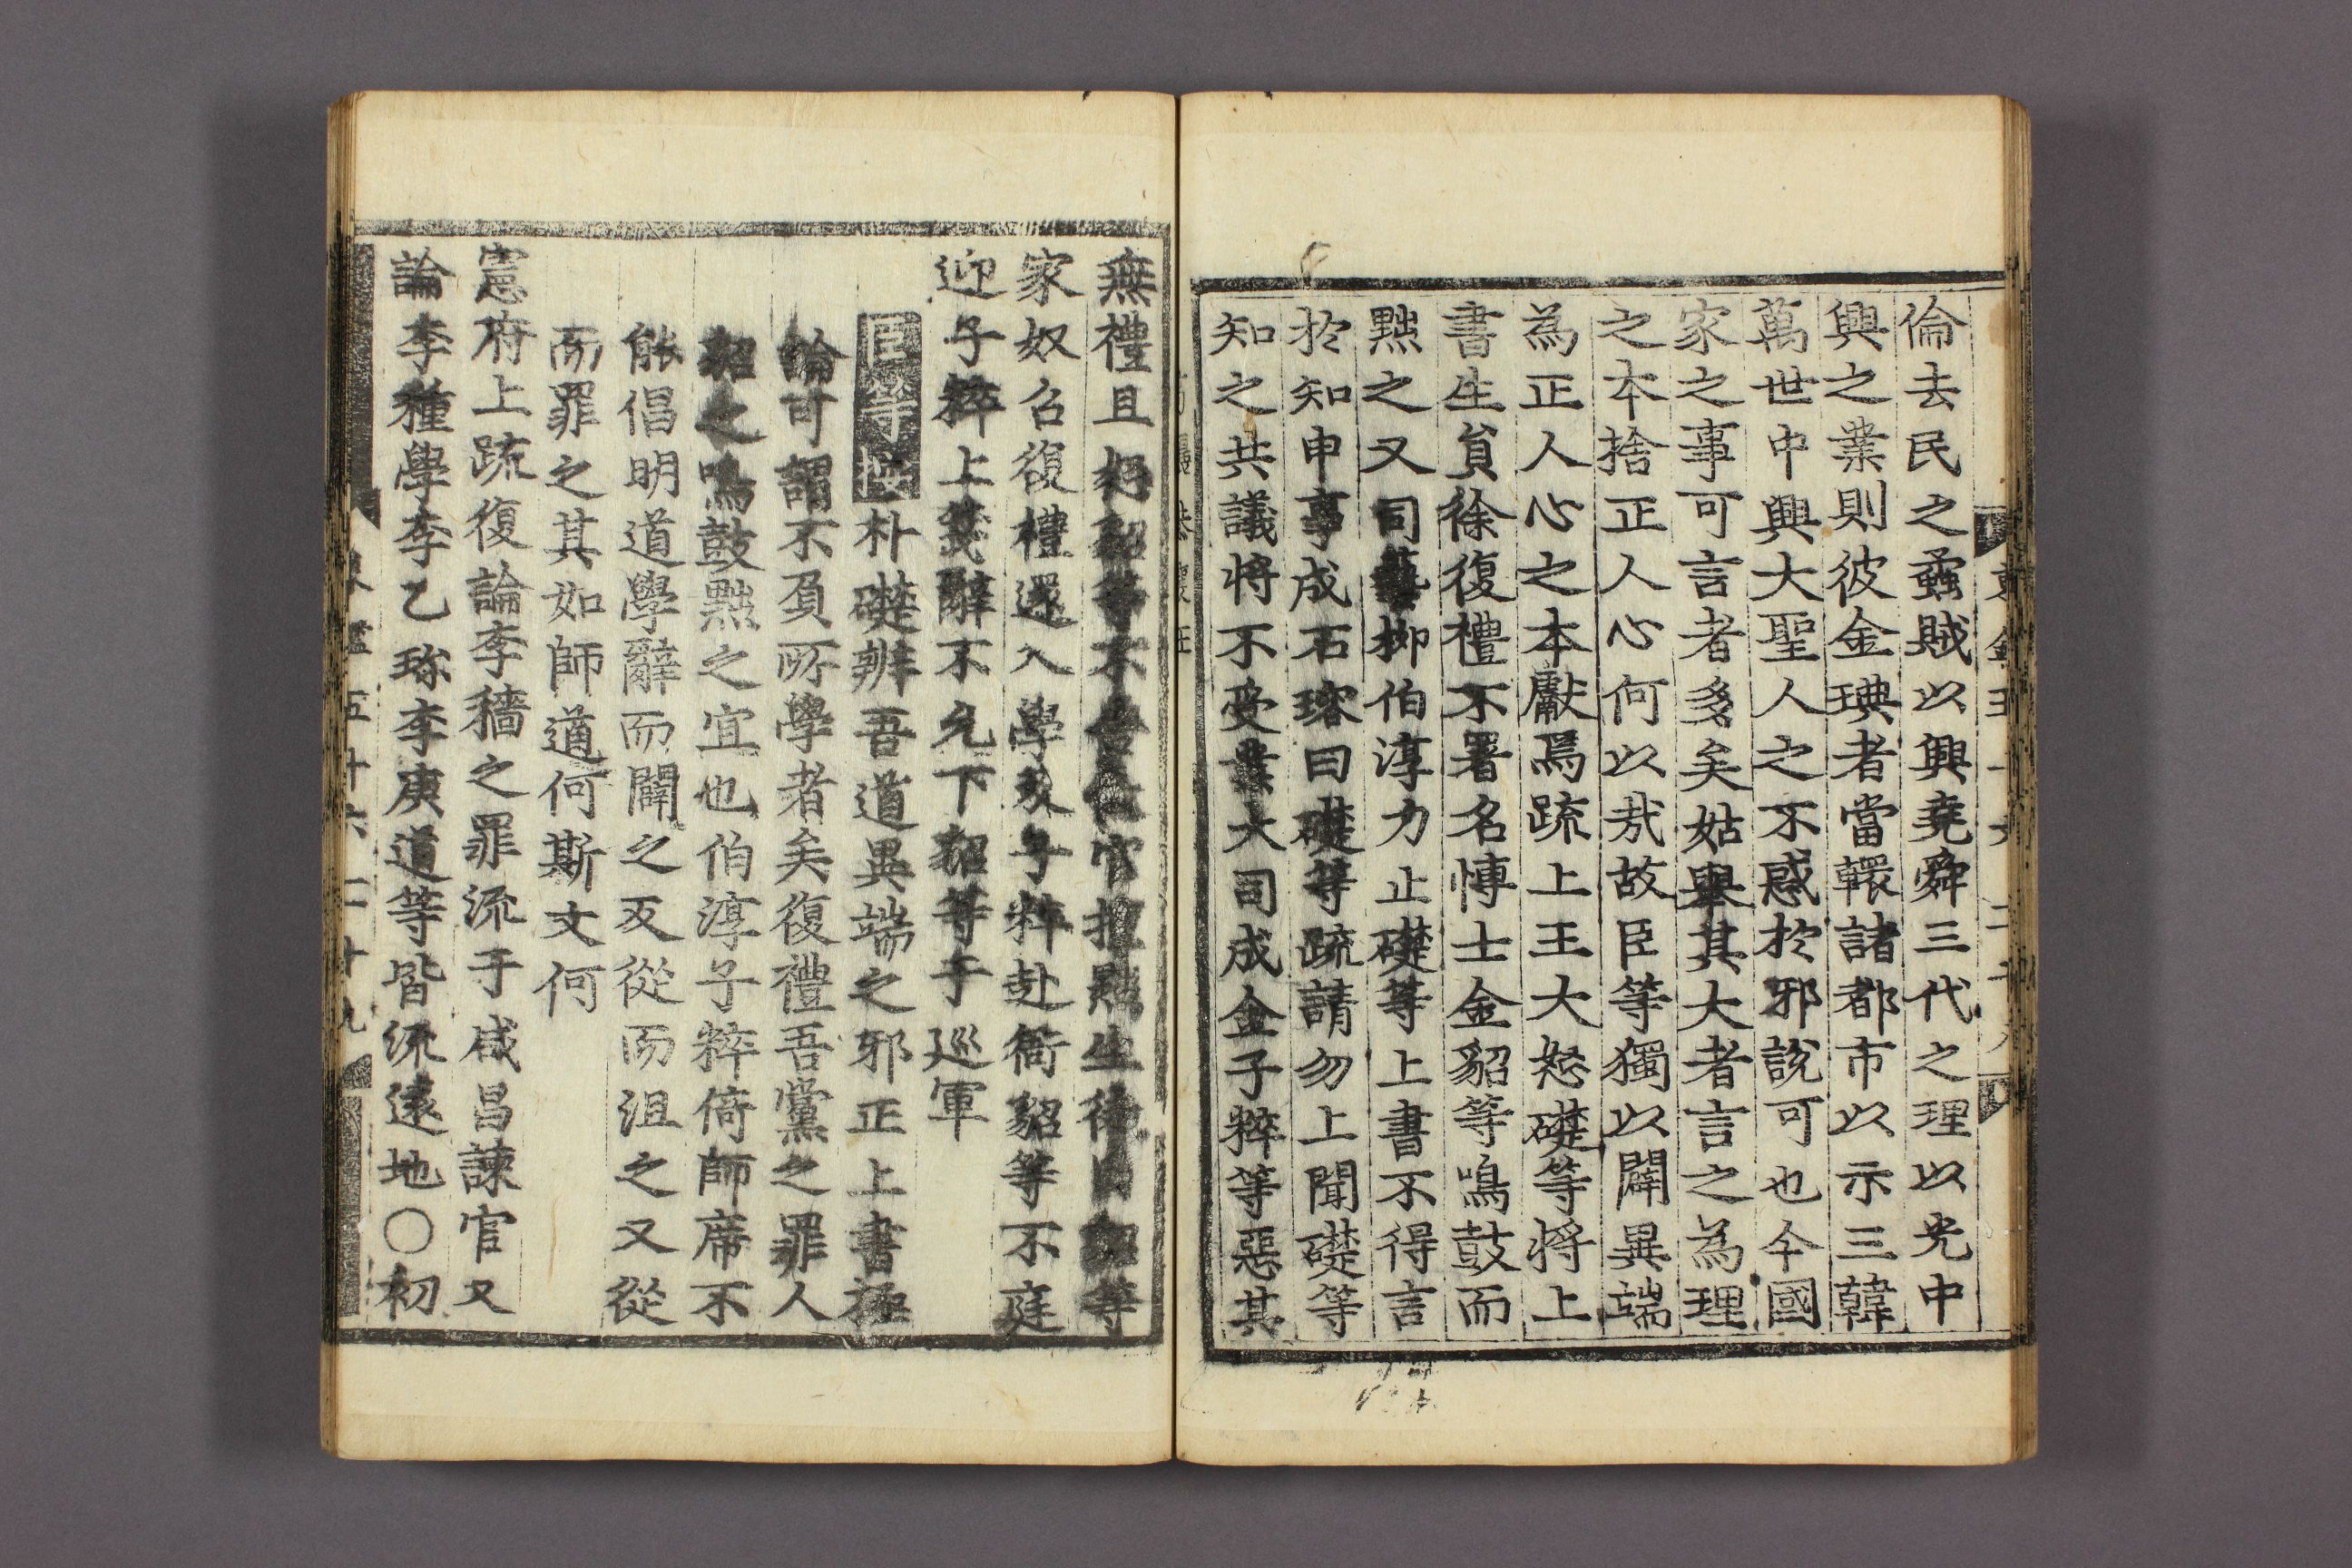 倫去民之蟊賊以興堯舜三代之理以光中
興之業則彼金琠者當轘諸都市以示三韓
萬世中興大聖人之不惑於邪說可也今國
家之事可言者多矣姑舉其大者言之為理
之本捨正人心何以哉故臣等獨以闢異端
為正人心之本獻焉疏上王大怒礎等將上
書生貟徐復禮不署名博士金貂等鳴鼓而
黜之又司藝柳伯淳力止礎等上書不得言
於知申事成石瑢曰礎等疏請勿上聞礎等
知之共議將不受業大司成金子粹等惡其
無禮且好貂等不告官擅黜生徒囚貂等
家奴召復禮還入學及子粹赴衙貂等不庭
迎子粹上箋辭不允下貂等于巡軍
臣等按朴礎辨吾道異端之邪正上書極
論可謂不負所學者矣復禮吾黨之罪人
貂之鳴鼓黜之宜也伯淳子粹倚師席不
能倡明道學辭而闢之反從而沮之又從
而罪之其如師道何斯文何
憲府上疏復論李穡之罪流于咸昌諫官又
論李種學李乙珍李庚道等皆流遠地〇初
東鑑五十六 二十九